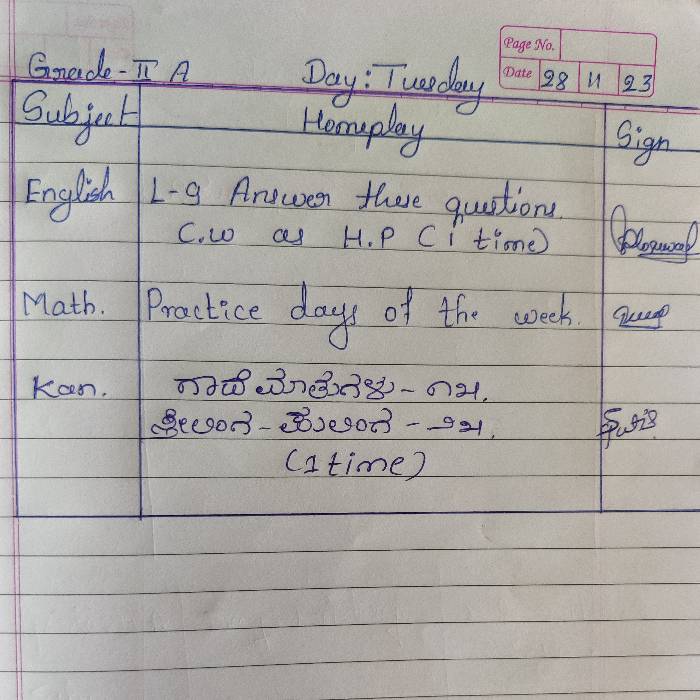 Page No.
Grade - II A Day: Tuesday Date 28 11 23
Subject Homeplay Sign
English L-9 Answer these questions.
C.W as H.P (1 time)
Math. Practice days of the week.
Kan. ಗಾದೆ ಮಾತುಗಳು -
(1 time)